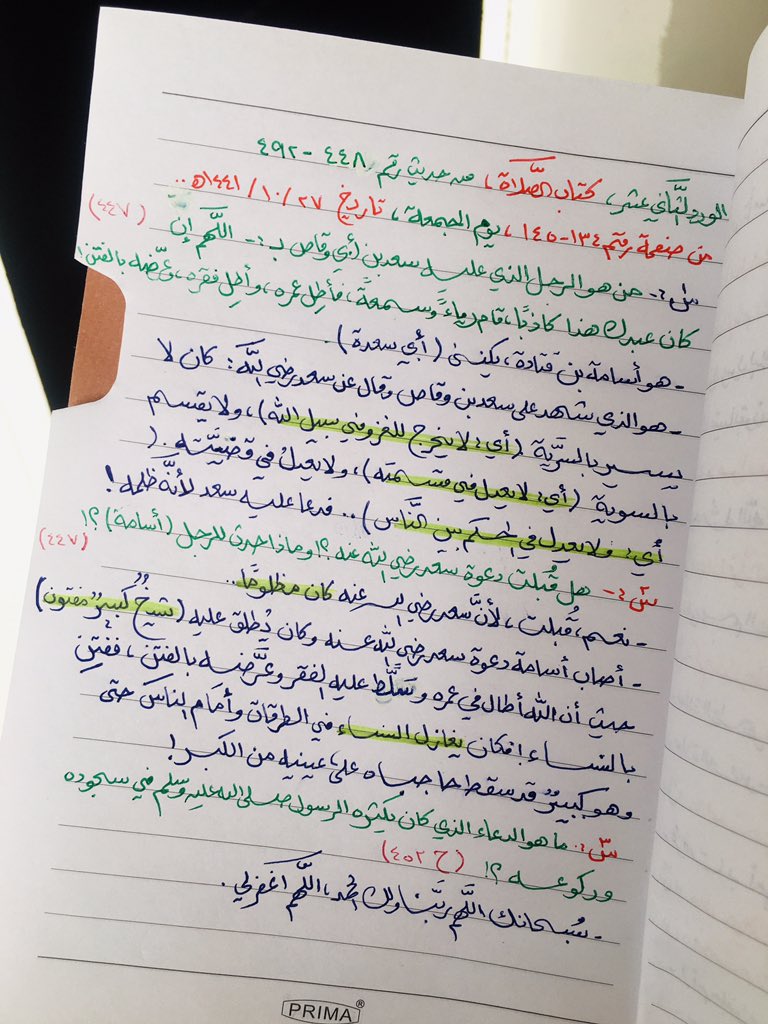 الورد الثَّاني عشر، كتاب الصَّلاة، من حديث رقم ٤٤٨ - ٤٩٢
من صفحة رقم ١٣٤-١٤٥، يوم الجمعة، تاريخ ٢٧/١٠/١٤٤١هـ..
س١:- من هو الرجل الذي عليه سعد بن أبي وقاص بـ:- اللَّهم إنّ (٤٤٧)
كان عبدك هذا كاذبًا، قام رياءً وسمعةً، فأطِل عمره، وأطِل فقره، وعرِّضه بالفتن!
- هو أسامة بن قتادة، يكنى (أبي سعدة).
- هو الذي شهد على سعد بن وقاص وقال عن سعد رضي اللَّه: كان لا
يسير بالسريَّة (أي: لا يخرج للغزو في سبيل الله)، ولا يقسم
بالسوية (أي: لا يعدل في قسمته)، ولا يعدِلُ في قضيَّته. (
أي: ولا يعدل في الحكم بين النَّاس).. فدعا عليه سعد لأنَّه ظلمه!
س٢:- هل قُبلت دعوة سعد رضي الله عنه؟! وماذا حدث للرجل (أسامة)؟! (٤٤٧)
- نعم، قُبلت، لأنَّ سعد رضي الله عنه كان مظلومًا..
- أصاب أسامة دعوة سعد رضي الله عنه وكان يُطلق عليه (شيخٌ كبيرٌ مفتون)
حيث أن الله أطال في عمره وسَلَّط عليه الفقر وعرَّضه بالفتن، ففُتِن
بالنساء! فكان يغازل النساء في الطرقات وأمام الناس حتى
وهو كبيرٌ قد سقط حاجباه على عينيه من الكبر!
س٣: ما هو الدعاء الذي كان يكثره الرسول صلى الله عليه وسلم في سجوده
وركوعه؟! (ح ٤٥٢)
- سُبحانك اللَّهم ربَّنا ولك الحمد، اللَّهم اغفرلي.
PRIMA®